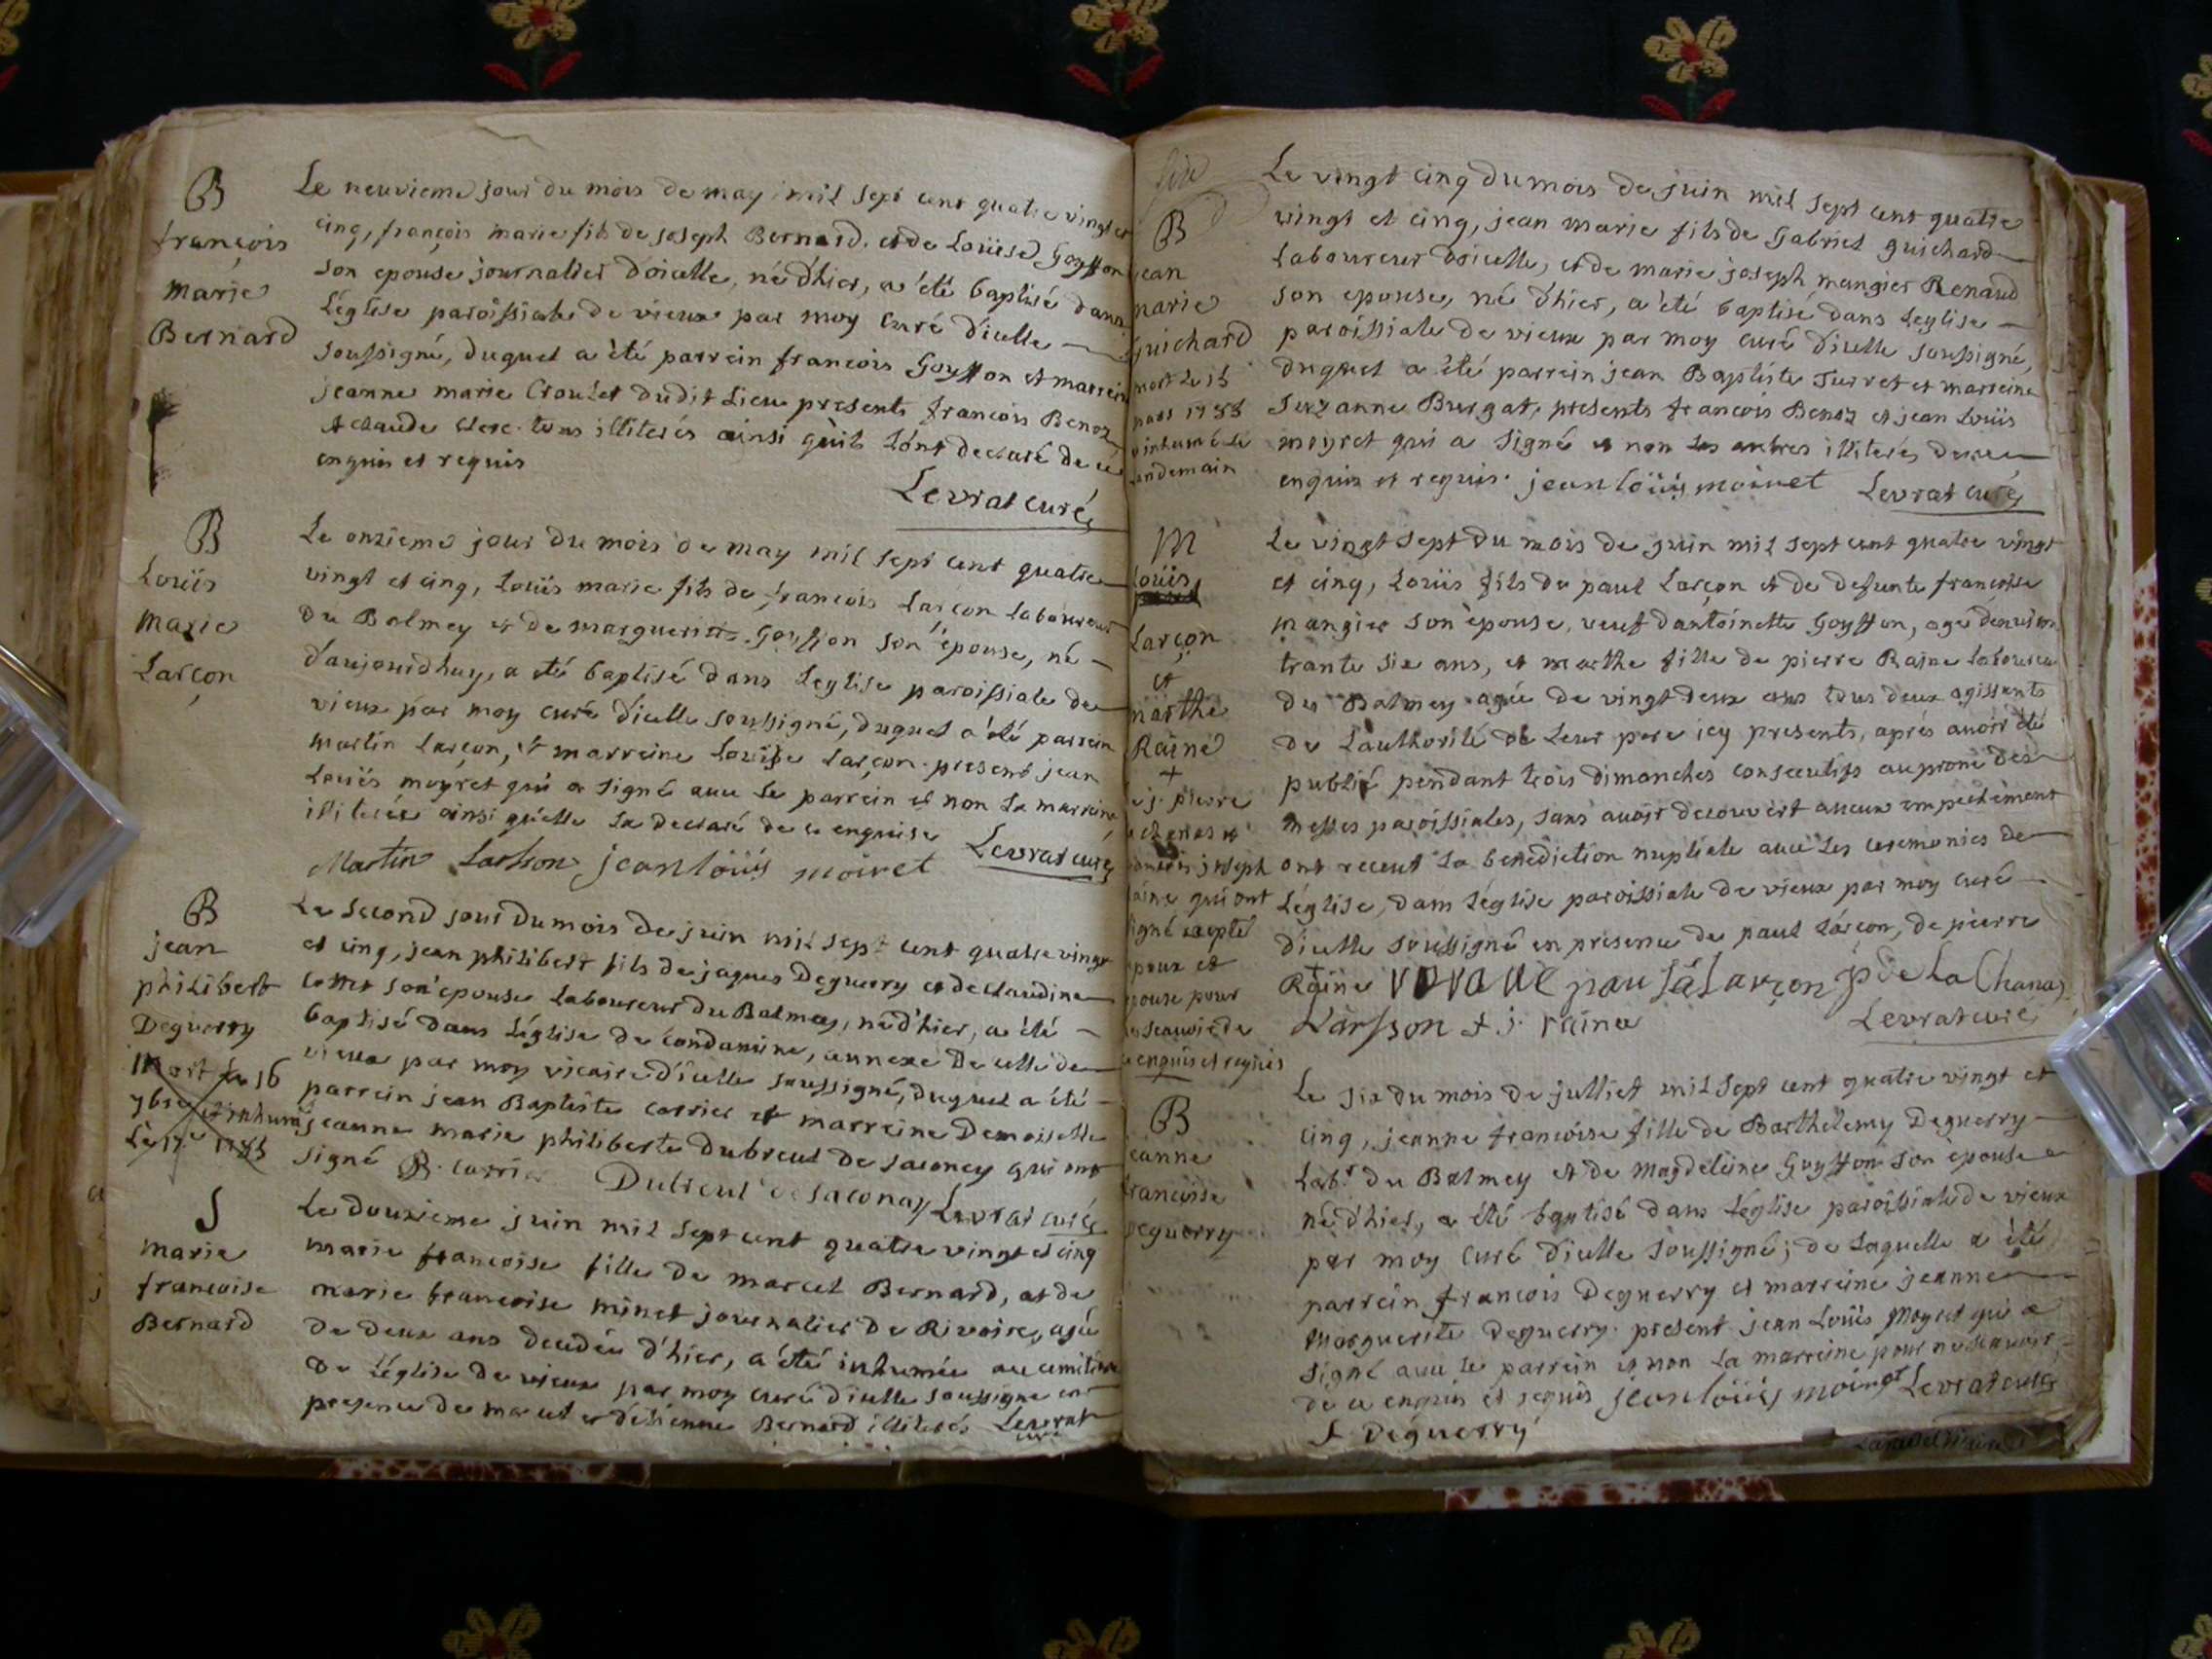 B
françois
marie
Bernard
Le neuvieme jour du mois de may mil sept cent quatre vingt et
cinq, françois marie fils de joseph Bernard, et de Loüise Goyffon
son epouse journalier d'icelle, né d'hier, a été baptisé dans
L'église paroissiale de vieux par moy curé d'icelle
soussigné, duquel a été parrein francois Goyffon et marreine
jeanne marie Crouzet dudit Lieu presents francois Benoz
et claude clerc tous illiterés ainsi qu'ils l'ont declaré de ce
enquis et requis
Levrat curé
B
Loüis
Marie
Larçon
Le onzieme jour du mois de may mil sept cent quatre
vingt et cinq, Loüis marie fils de francois Larçon Laboureur
du Balmey et de marguerite Goyffon son épouse, né
d'aujourdhuy, a été baptisé dans Leglise paroissiale de
vieux par moy curé d'icelle soussigné, duquel a été parrein
Martin Larçon, et marreine Louise Larçon present jean
Loüis moyret qui a signé avec le parrein et non la marreine
illiterée ainsi qu'elle la declaré de ce enquise
Levrat curé
Martin Larson jean loüis moiret
B
jean
philibert
Deguerry
mort le 16
ybre et inhumé
Le 17e 1785
Le second jour du mois de juin mil sept cent quatre vingt
et cinq, jean philibert fils de jaques Deguerry et de claudine
cottet son epouse Laboureur du Balmey, né d'hier, a été
baptisé dans L'église de condamine, annexe de celle de
vieux par moy vicaire d'icelle soussigné, duquel a été
parrein jean Baptiste carrier et marreine Demoiselle
jeanne marie philiberte dubreul de saconey qui ont
signé B. carrier Dubreul de saconay Levrat curé
S
marie
francoise
Bernard
Le douzieme juin mil sept cent quatre vingt et cinq
marie francoise fille de marcel Bernard, et de
marie francoise minet journalier de Rivoire, agée
de deux ans decedée d'hier, a été inhumée au cimitiere
de L'église de vieux par moy curé d'icelle soussigné en
presence de marcel et d'étienne Bernard illiterés Levrat
curé
B
jean
marie
Guichard
mort le 15
mars 1788
inhumé le
Lendemain
Le vingt cinq du mois de juin mil sept cent quatre
vingt et cinq, jean marie fils de Gabriel guichard
Laboureur d'icelle, et de marie joseph mangier Renaud
son epouse, né d'hier, a été baptisé dans Leglise
paroissiale de vieux par moy curé d'icelle soussigné,
duquel a été parrein jean Baptiste Jurret et marreine
Suzanne Burgat, presents francois Benoz et jean Loüis
moyret qui a signé et non les autres illiterés de ce
enquis et requis jean loüis moiret Levrat curé
M
Louis
Larçon
et
marthe
Raine
Le vingt sept du mois de juin mil sept cent quatre vingt
et cinq, Loüis fils de paul Larçon et de defunte francoise
mangier son épouse, veuf d'antoinette Goyffon, agé denviron
trante six ans, et marthe fille de pierre Raine Laboureur
du Balmey agée de vingt deux ans tous deux agissants
de L'authorité de leur pere icy presents, aprés avoir été
publié pendant trois dimanches consecutifs au prone des
messes paroissiales, sans avoir decouvert aucun empechement
ont receut la benediction nuptiale avec les ceremonies de
L'église, dans L'église paroissiale de vieux par moy curé
d'icelle soussigné en presence de paul Larçon, de pierre
Raine
+
j. pierre
joseph
Raine qui ont
signé excepté
epoux et
epouse pour
ne scavoir de
ce enquis et requis
Larçon p de La Chanas
Larsson + j. raine Levrat curé
B
jeanne
francoise
Deguerry
Le six du mois de julliet mil sept cent quatre vingt et
cinq, jeanne francoise fille de Barthelemy Deguerry
Labr. du Balmey et de Magdeleine Goyffon son epouse
né d'hier, a été baptisé dans L'église paroissiale de vieux
par moy curé d'icelle soussigné; de laquelle a été
parrein francois Deguerry et marreine jeanne
Marguerite Deguerry present jean Loüis Moyret qui a
signé avec le parrein et non la marreine pour ne scavoir
de ce enquis et requis jean loüis moiret Levrat curé
f Deguerry